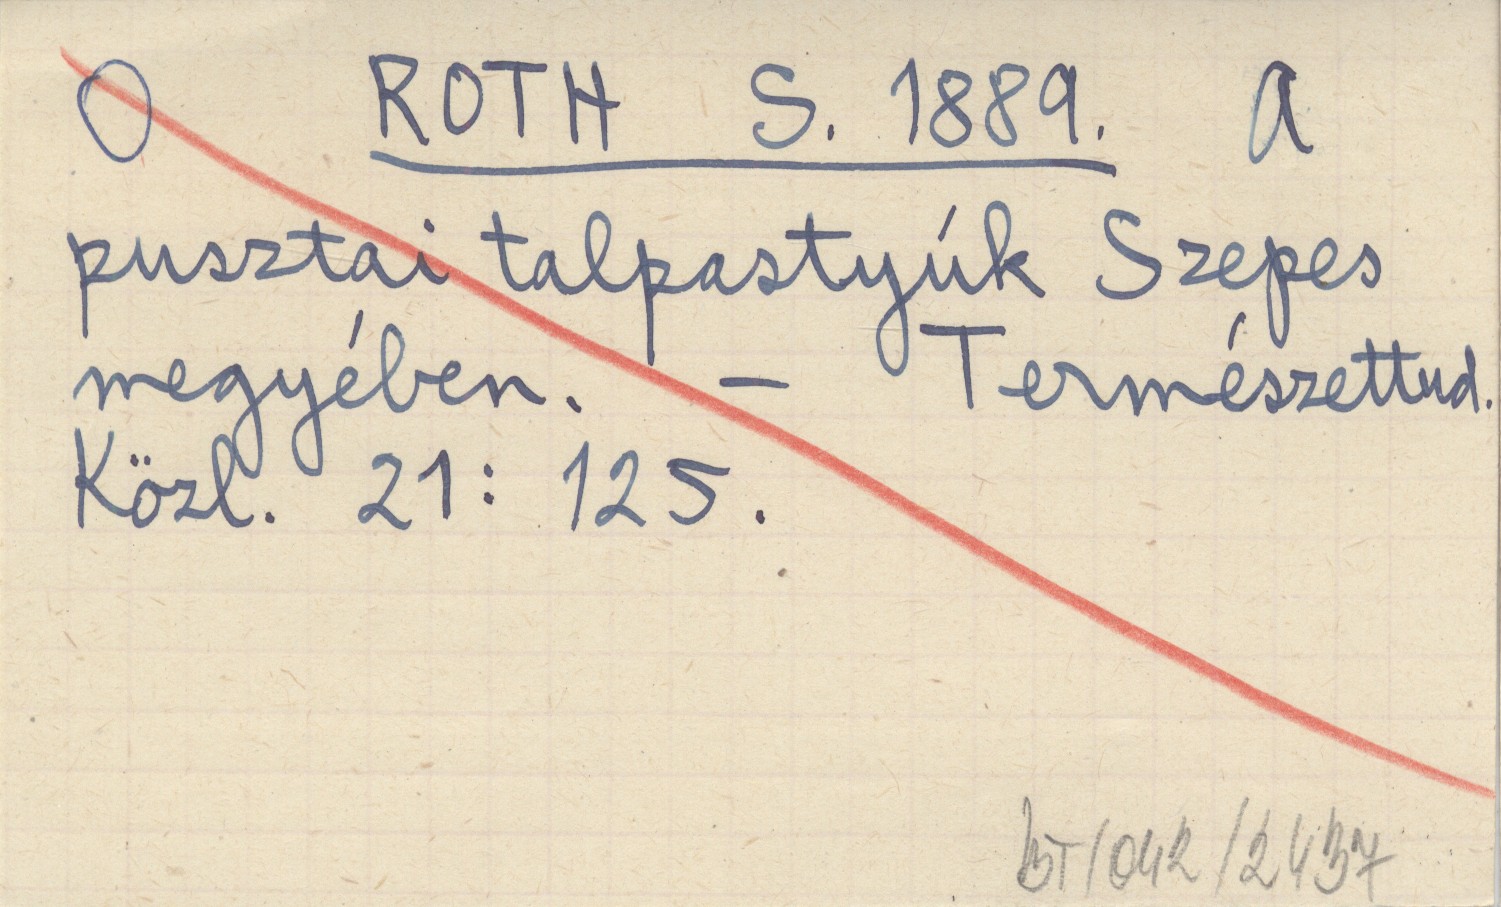 O ROTH S. 1889. A
pusztai talpastyúk Szepes
megyében. — Természettud.
Közl. 21: 125.
BT/042/2437